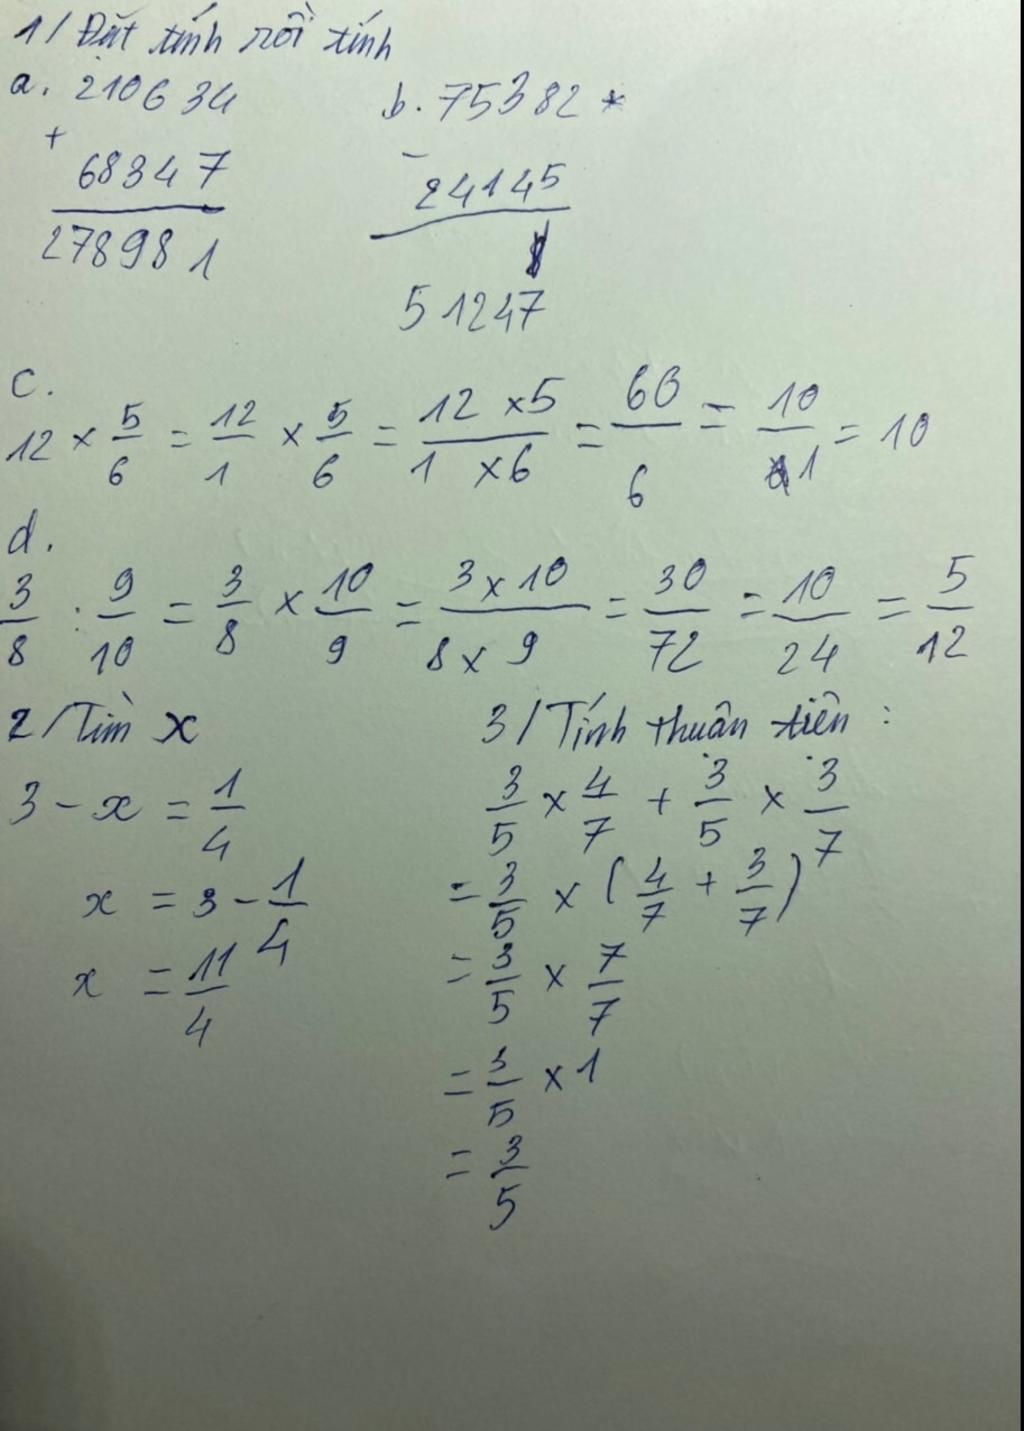 1/ Đặt tính rồi tính
a. 210634
+
68347
278981
b. 75382 *
-
24145
51247
c.
12 × 5/6 = 12/1 × 5/6 = 12 × 5 / 1 × 6 = 60/6 = 10/1 = 10
d.
3/8 : 9/10 = 3/8 × 10/9 = 3 × 10 / 8 × 9 = 30/72 = 10/24 = 5/12
2/ Tìm x
3 - x = 1/4
x = 3 - 1/4
x = 11/4
3/ Tính thuân tiên :
3/5 × 4/7 + 3/5 × 3/7
= 3/5 × (4/7 + 3/7)
= 3/5 × 7/7
= 3/5 × 1
= 3/5